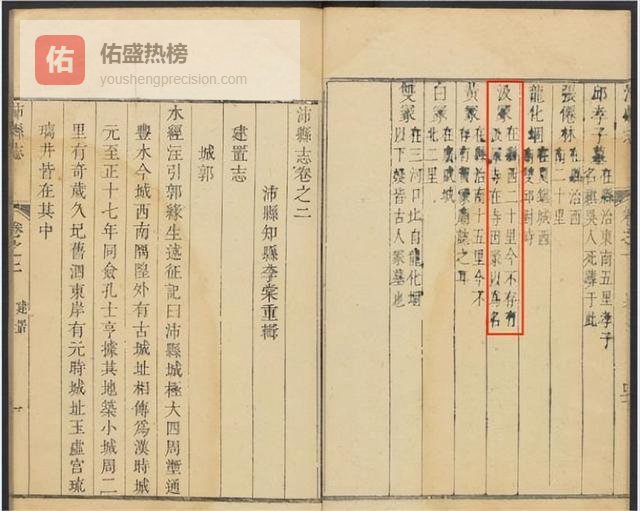 佑
佑盛热榜
youshengprecision.com
邱孝子墓
在縣治東南五里孝子
吳人死葬于此
張僊林
在縣治西
南二十里
龍化堌
城西
汲冢
在縣西二十里今不存有
冢寺在寺因冢以爲名
黃冢
在縣治南十五里今不
存有黃冢廟誌之耳
白冢
在廣戚城
北二里
雙冢
在三河口止自龍化堌
以下疑皆古人冢墓也
沛縣志卷之二
沛縣知縣李棠重輯
建置志
城郭
水經注引郭緣生述征記曰沛縣城極大四周壍通
豐水今城西南隅隍外有古城址相傳爲漢時城
元至正十七年同僉孔士亨據其地築小城周二
里有奇歲久圮舊泗東岸有元時城址玉虛宮琉
璃井皆在其中
沛縣志
卷之二
建置
一